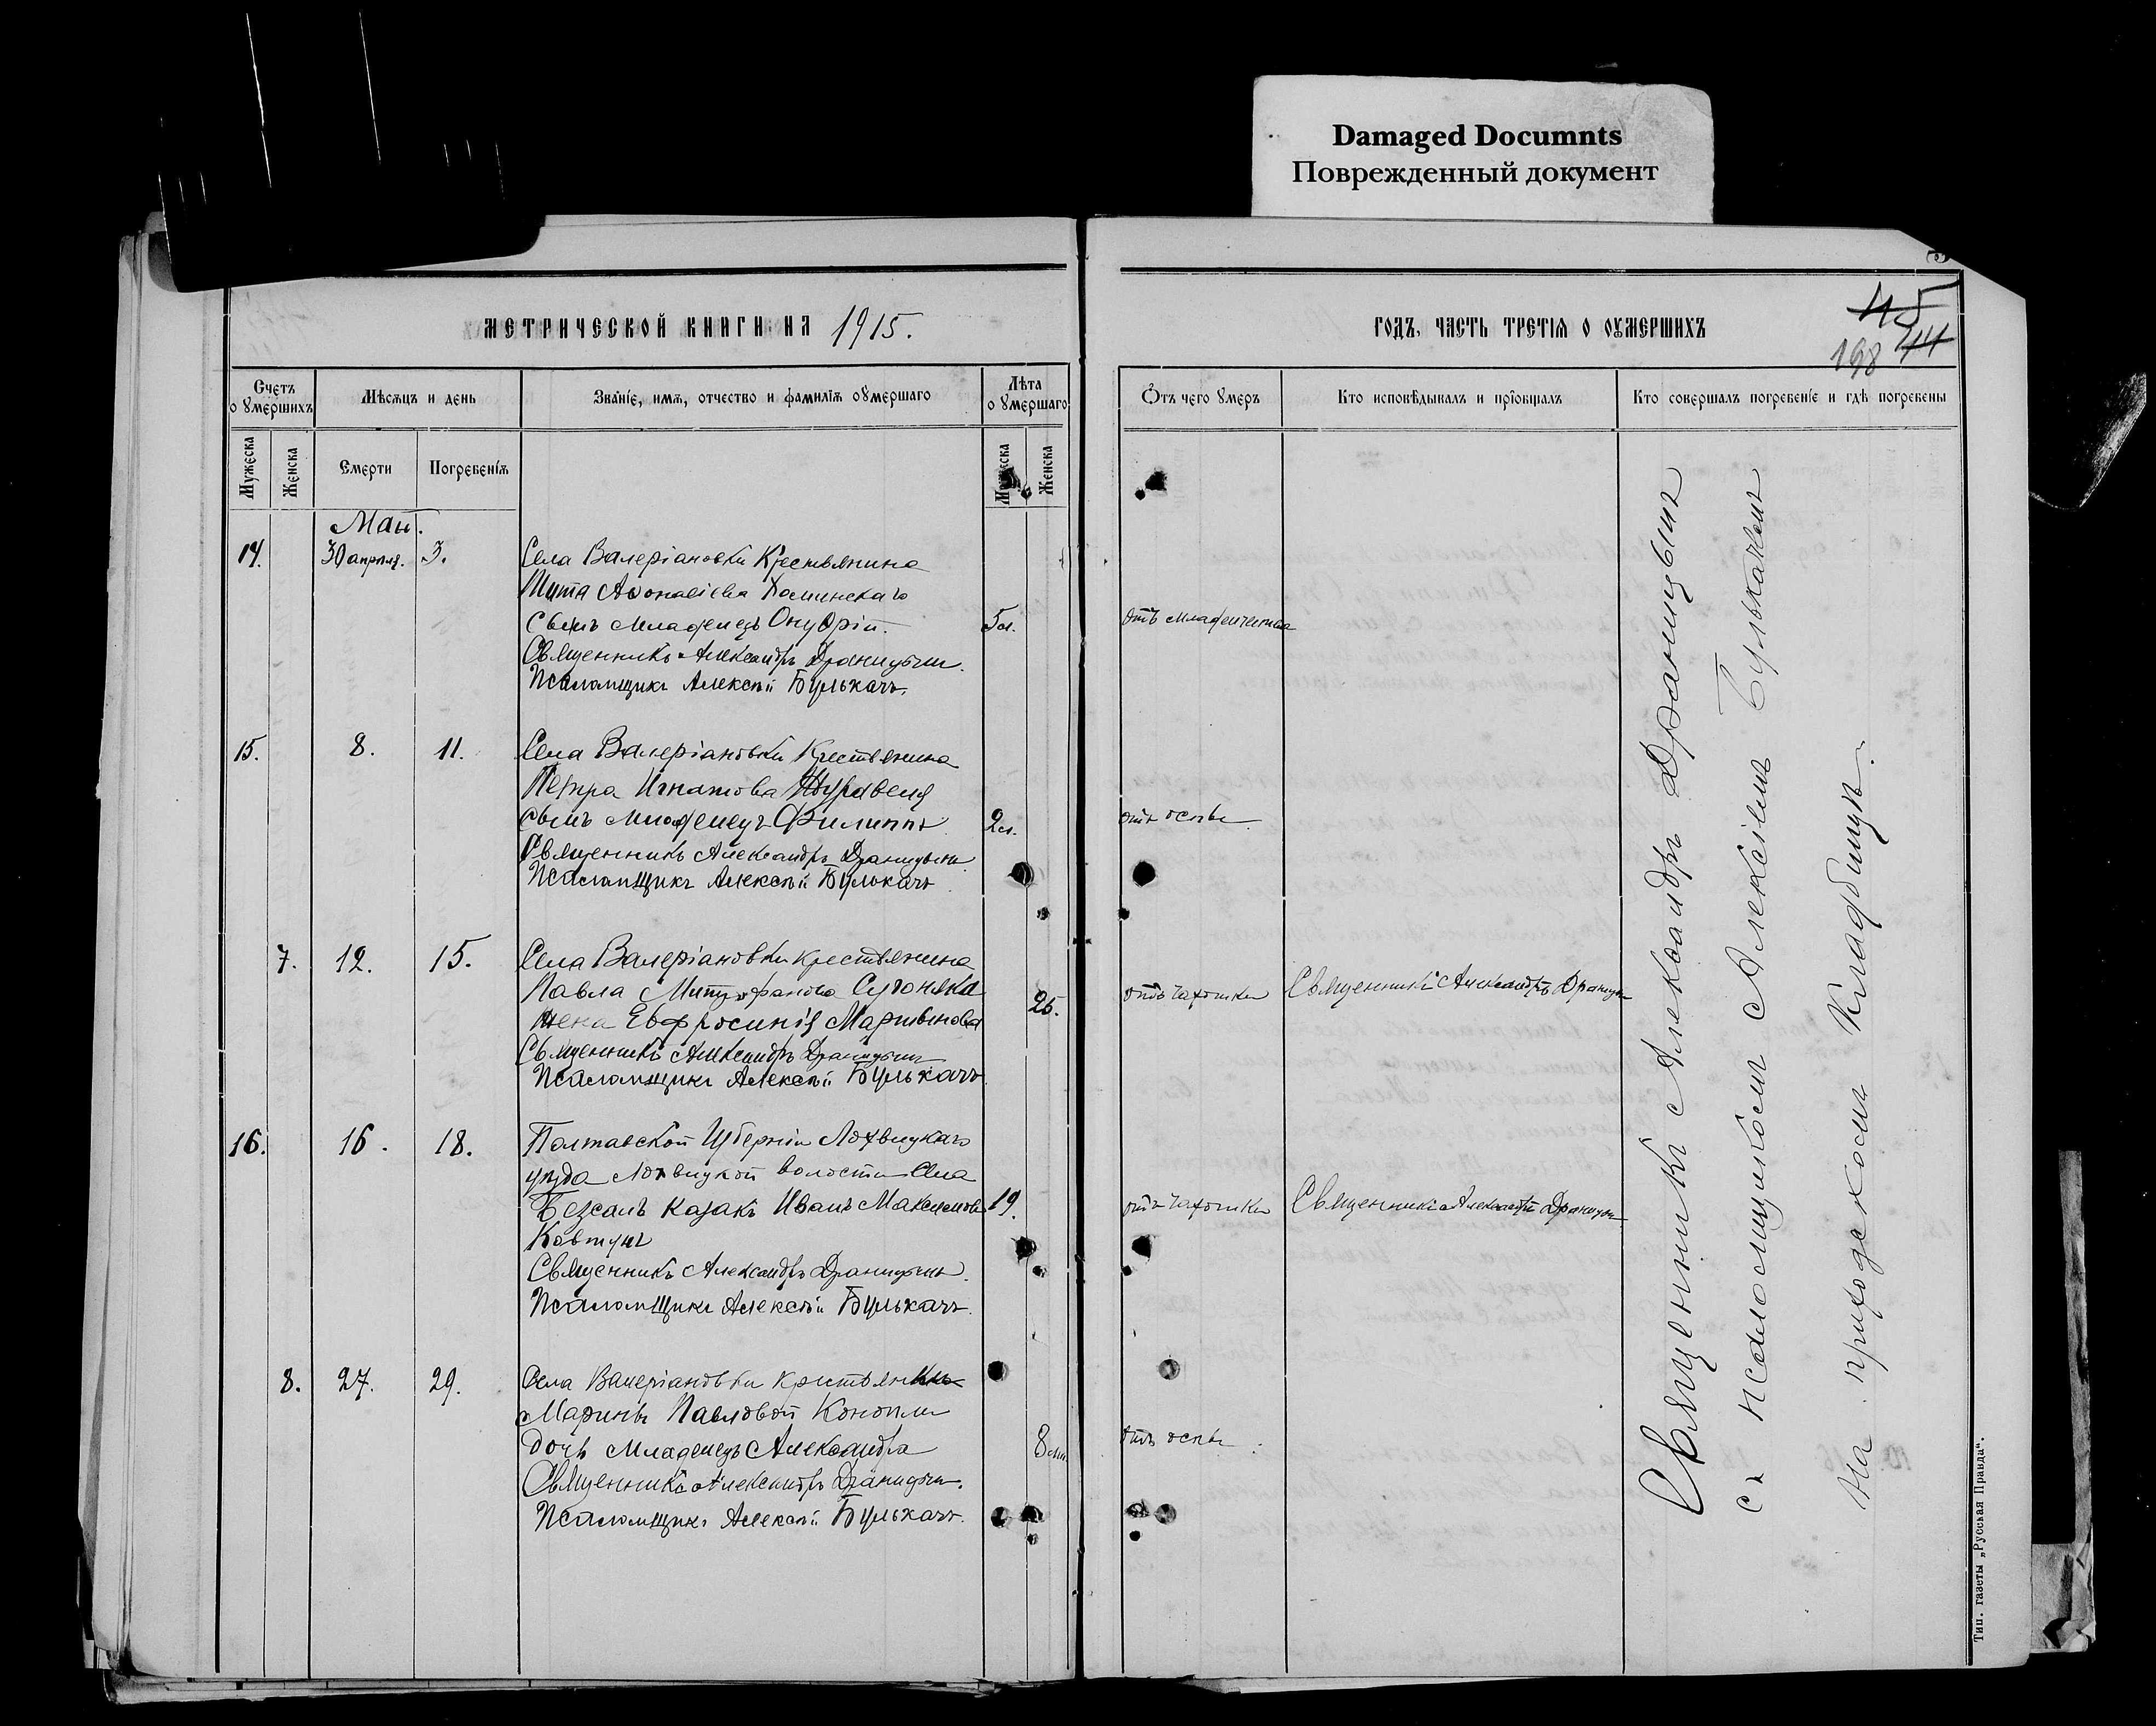 Damaged Documnts
Поврежденный документ
МЕТРИЧЕСКОЙ КНИГИ НА 1915.
ГОДЪ, ЧАСТЬ ТРЕТІЯ О ОУМЕРШИХЪ
45
44
198
Счетъ о умершихъ
Мѣсяцъ и день
Званіе, имя, отчество и фамилія оумершаго
Лѣта о умершаго
Отъ чего умеръ
Кто исповѣдывалъ и пріобщалъ
Кто совершалъ погребеніе и гдѣ погребены
Мужеска
Женска
Смерти
Погребенія
Мужеска
Женска
Май.
14. 30 апрѣля. 3. Села Валеріановки Крестьянина
Тита Аѳонасіева
Сынъ младенецъ Онуфрій. 5 м. отъ младенческой
Священникъ Александръ Драницынъ.
Псаломщикъ Алексѣй Булькачъ.
15. 8. 11. Села Валеріановки Крестьянина
Петра Игнатова Журавеля
сынъ младенецъ Филиппъ 2 м. отъ оспы.
Священникъ Александръ Драницынъ
Псаломщикъ Алексѣй Булькачъ
7. 12. 15. Села Валеріановки крестьянина
Павла Митрофанова Сугоняка
жена Евфросинія Мартынова 26. отъ чахотки Священникъ Александръ Драницын
Священникъ Александръ Драницынъ
Псаломщикъ Алексѣй Булькачъ
16. 16. 18. Полтавской Губерніи Лохвицкаго
уѣзда Лохвицкой волости села
Безсалъ казакъ Иванъ Максимовъ 19. отъ чахотки Священникъ Александръ Драницын
Ковтунъ
Священникъ Александръ Драницынъ.
Псаломщикъ Алексѣй Булькачъ.
8. 27. 29. Села Валеріановки крестьянки
Марины Павловой Конопли
дочь младенецъ Александра 8 м. отъ оспы.
Священникъ Александръ Драницын.
Псаломщикъ Алексѣй Булькачъ.
Священникъ Александръ Драницынъ
съ псаломщикомъ Алексіемъ Булькачемъ
На приходскомъ кладбищѣ.
Тип. газеты „Русская Правда“.